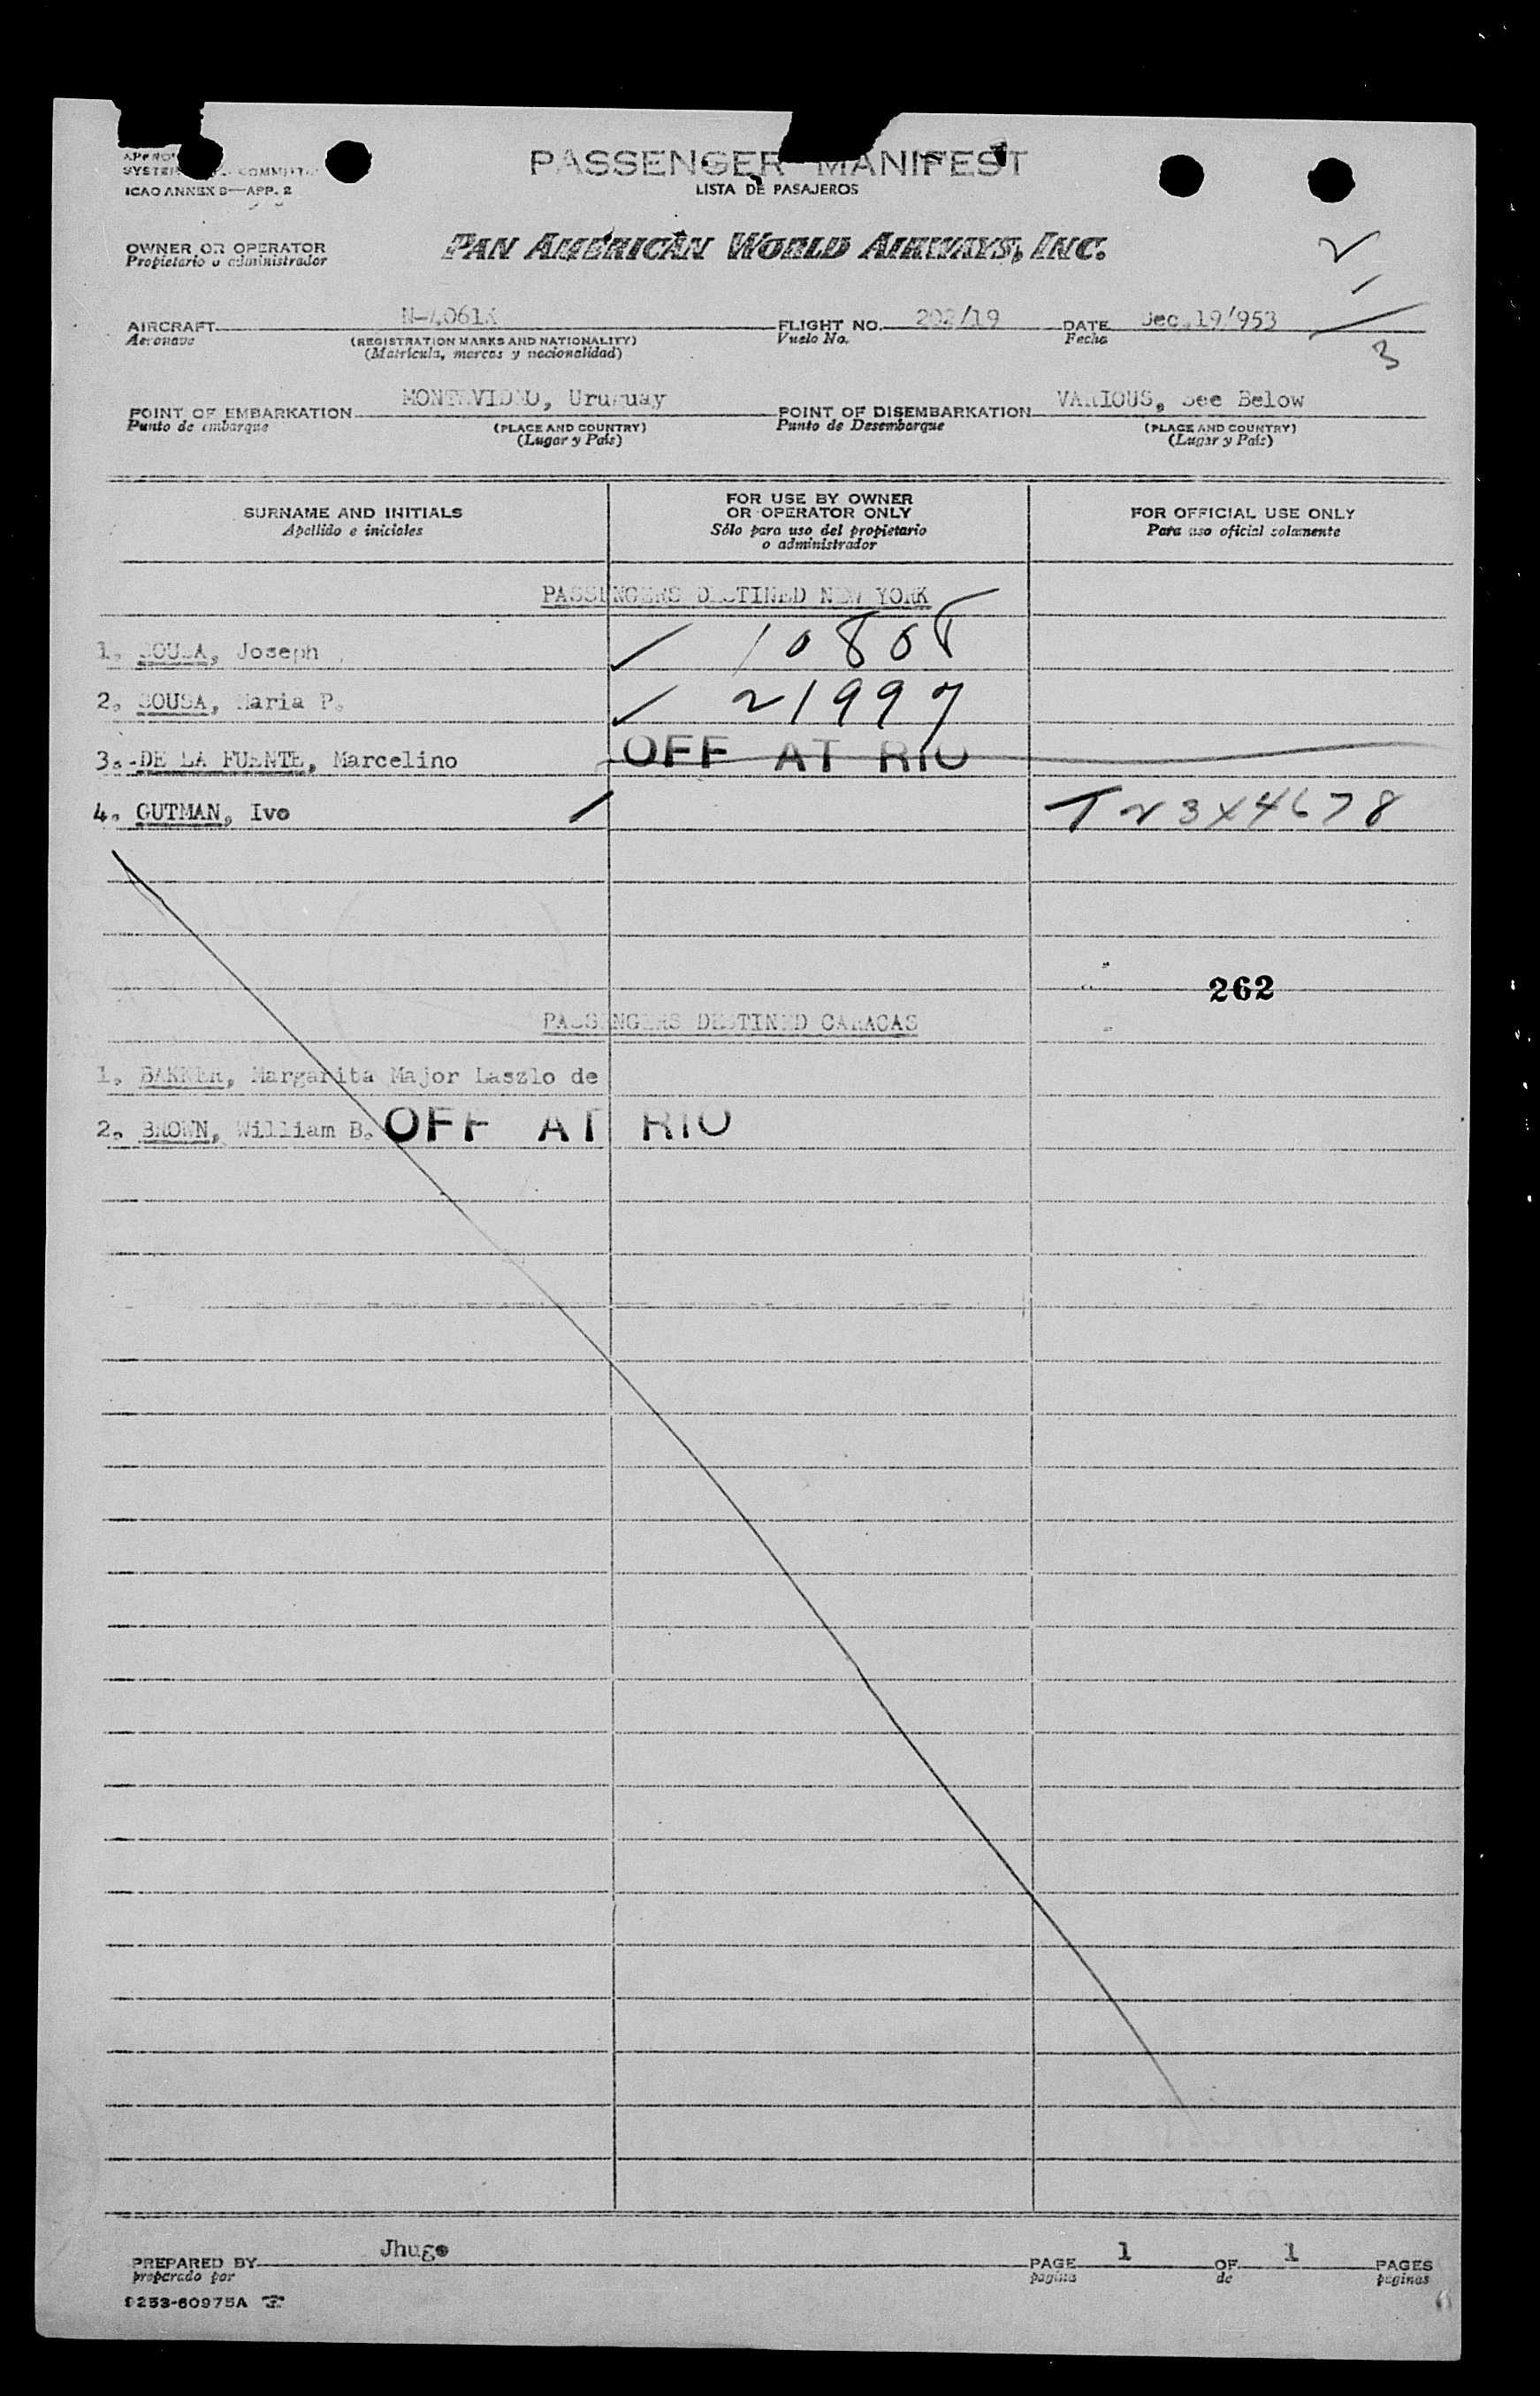 PASSENGER MANIFEST
LISTA DE PASAJEROS
ICAO ANNEX 9—APP. 2
OWNER OR OPERATOR
Propietario o administrador
PAN AMERICAN WORLD AIRWAYS, INC.
2
1
3
AIRCRAFT N-4061K FLIGHT NO. 202/19 DATE Dec.19/953
Aeronave (REGISTRATION MARKS AND NATIONALITY) Vuelo No. Fecha
(Matrícula, marcas y nacionalidad)
POINT OF EMBARKATION MONTEVIDEO, Uruguay POINT OF DISEMBARKATION VARIOUS, See Below
Punto de embarque (PLACE AND COUNTRY) Punto de Desembarque (PLACE AND COUNTRY)
(Lugar y País) (Lugar y País)
SURNAME AND INITIALS FOR USE BY OWNER OR OPERATOR ONLY FOR OFFICIAL USE ONLY
Apellido e iniciales Sólo para uso del propietario o administrador Para uso oficial solamente
PASSENGERS DESTINED NEW YORK
1. SOUSA, Joseph 10808
2. SOUSA, Maria P. 21997
3.-DE LA FUENTE, Marcelino OFF AT RIO
4. GUTMAN, Ivo T23X4678
262
PASSENGERS DESTINED CARACAS
1. BAKKER, Margarita Major Laszlo de
2. BROWN, William B. OFF AT RIO
PREPARED BY Jhugo PAGE 1 OF 1 PAGES
preparado por pagina de paginas
9253-60975A